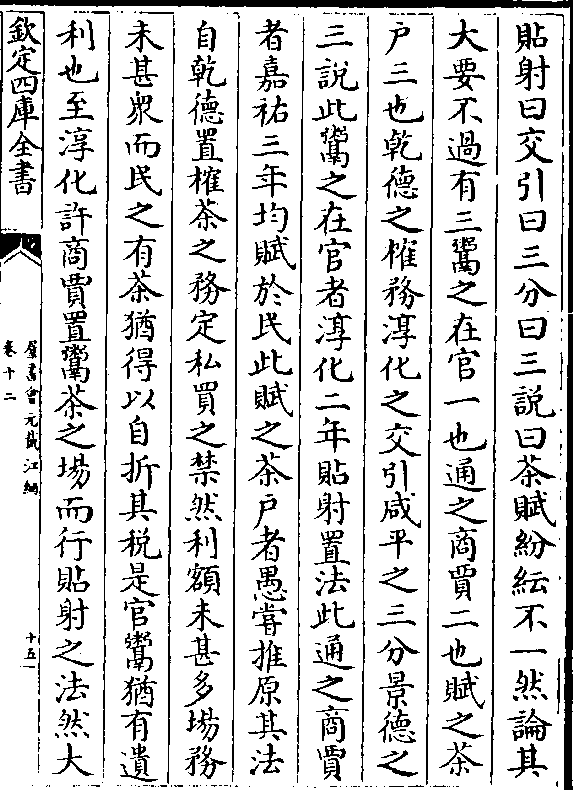 貼射曰交引曰三分曰三説曰茶賦紛紜不一然論其
大要不過有三鬻之在官一也通之商賈二也賦之茶
户三也乾德之榷務淳化之交引咸平之三分景德之
三説此鬻之在官者淳化二年貼射置法此通之商賈
者嘉祐三年均賦於民此賦之茶户者愚嘗推原其法
自乾德置榷茶之務定私買之禁然利額未甚多場務
未甚衆而民之有茶猶得以自折其税是官鬻猶有遺
利也至淳化許商賈置鬻茶之場而行貼射之法然大
欽定四庫全書
羣書會元截江網
卷十二
十五